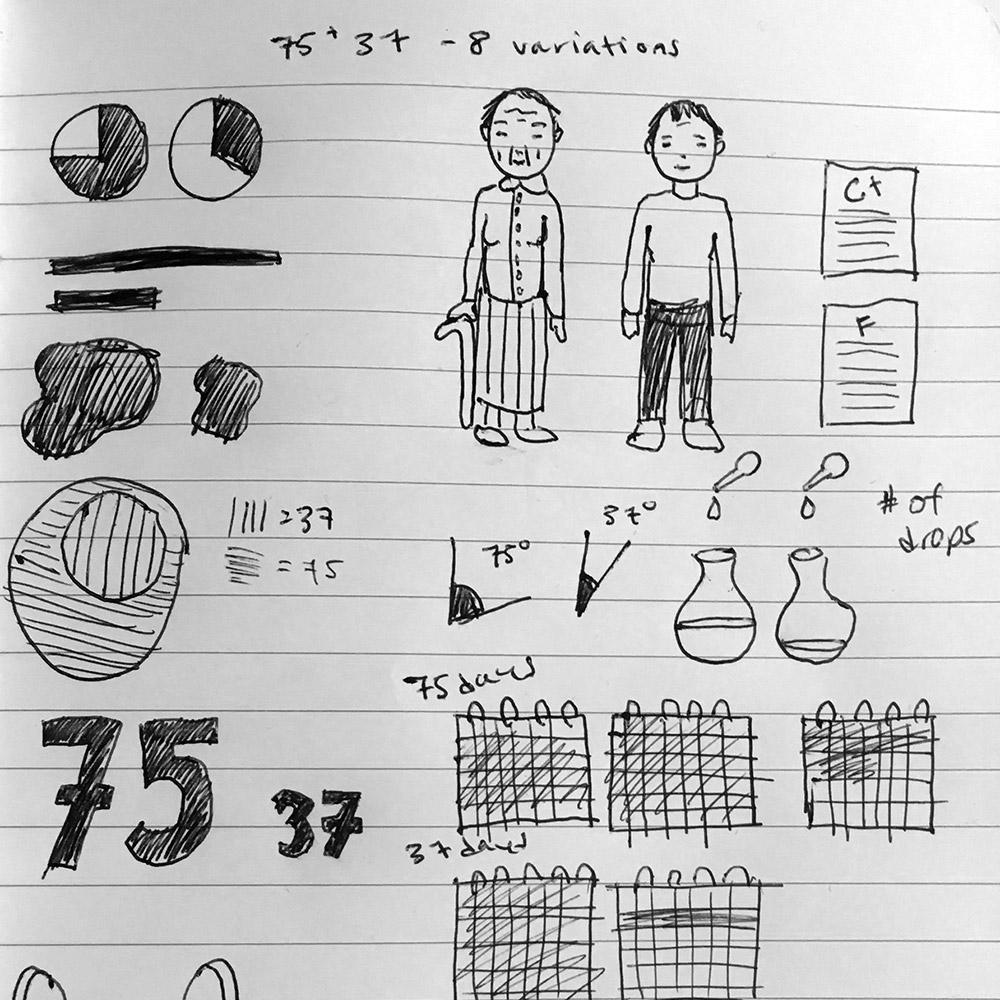 75 + 37 - 8 variations
C+
F
= 37
= 75
75°
37°
# of
drops
75 days
75
37
37 days